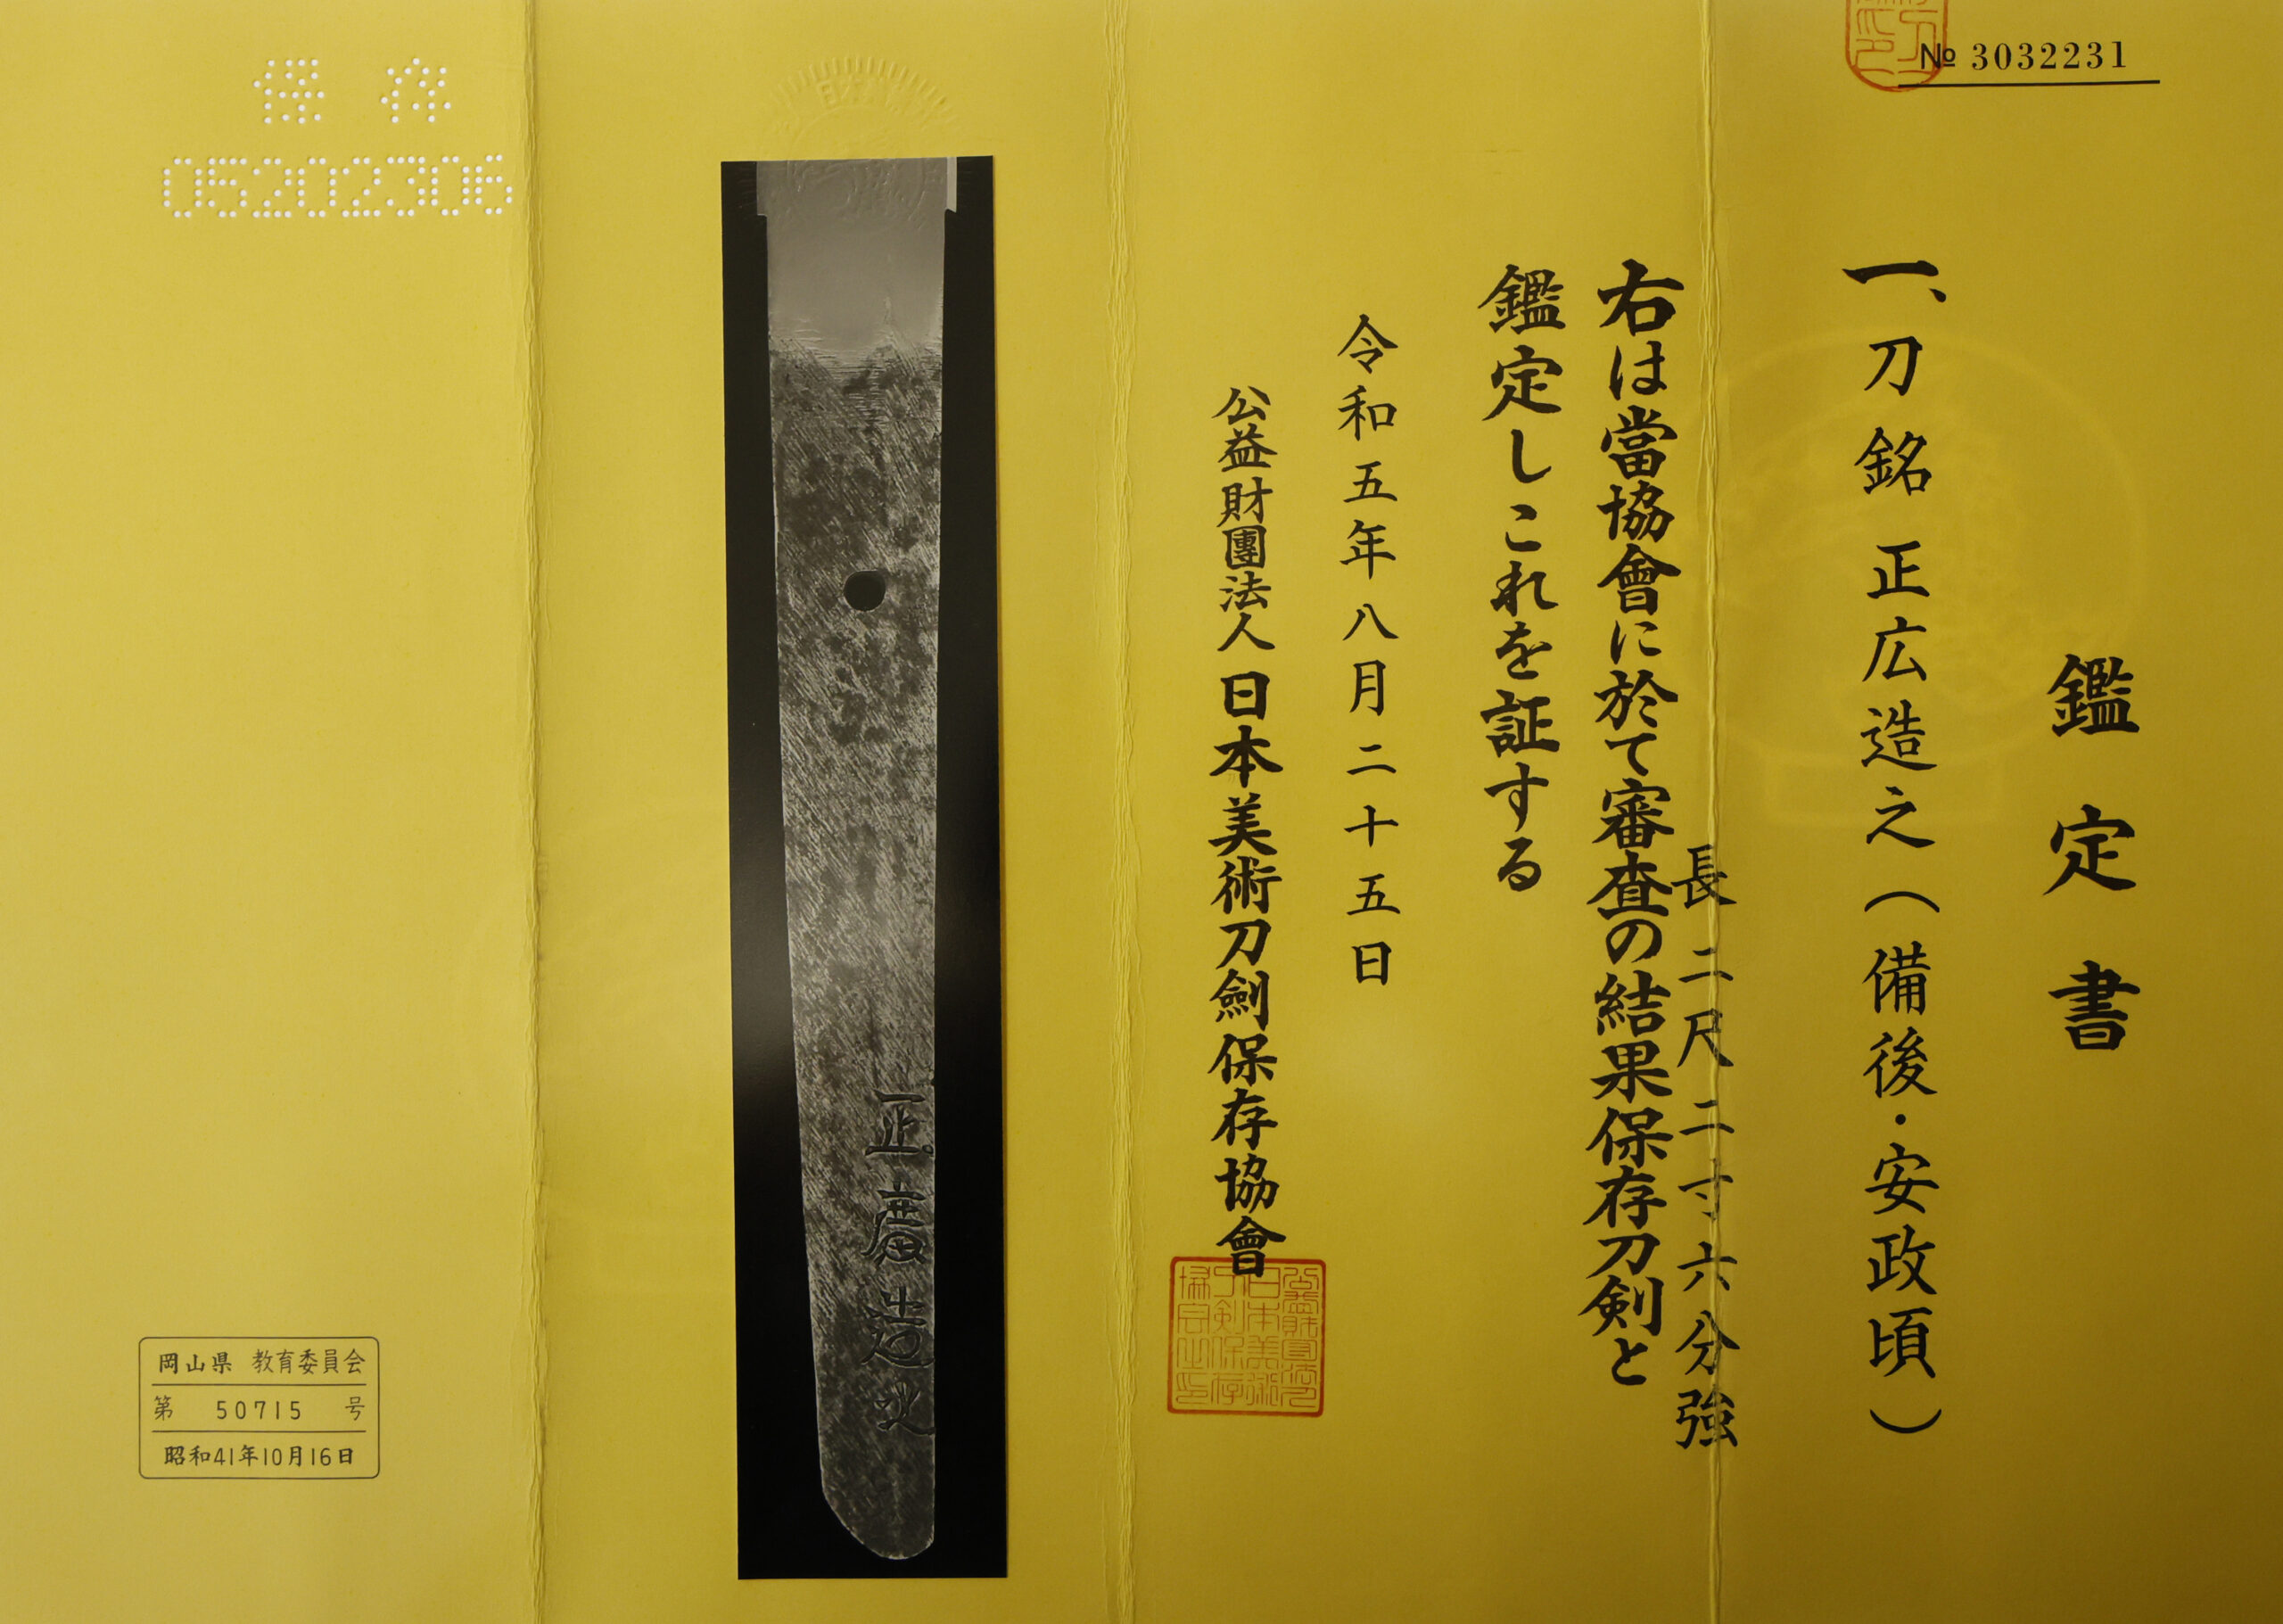 № 3032231
鑑定書
一、刀 銘 正広造之(備後・安政頃)
長 二尺二寸六分強
右は當協會に於て審査の結果保存刀剣と
鑑定しこれを証する
令和五年八月二十五日
公益財團法人 日本美術刀劍保存協會
正廣造之
保存
05202306
岡山県 教育委員会
第 50715 号
昭和41年10月16日